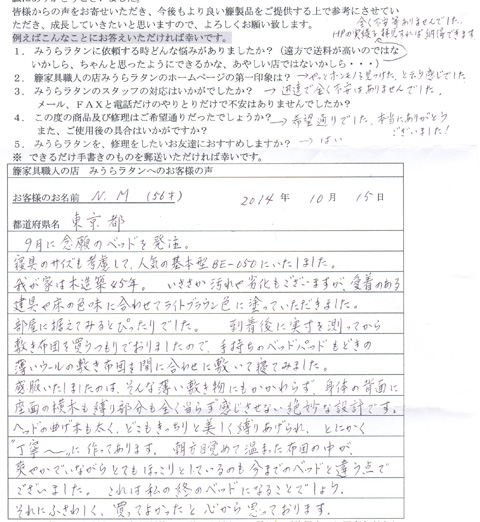 皆様からの声をお寄せいただき、今後もより良い籐製品をご提供する上で参考にさせてい
ただき、成長していきたいと思いますので、よろしくお願い致します。
全く不安等ありませんでした。
HPの実績を拝見すれば納得できます
例えばこんなことにお答えいただければ幸いです。
1．みうらラタンに依頼する時どんな悩みがありましたか？（遠方で送料が高いのではな
いかしら、ちゃんと思ったようにできるかな、あやしい店ではないかしら・・・）
2．籐家具職人の店みうらラタンのホームページの第一印象は？→やっとホンモノ見つけた、と云う感じでした
3．みうらラタンのスタッフの対応はいかがでしたか？→迅速で全く不安はありませんでした。
メール、FAXと電話だけのやりとりだけで不安はありませんでしたか？
4．この度の商品及び修理はご希望通りだったでしょうか？→希望通りでした、本当にありがとう
ございました！
また、ご使用後の具合はいかがですか？
5．みうらラタンを、修理をしたいお友達におすすめしますか？→はい
※ できるだけ手書きのものを郵送いただければ幸いです。
籐家具職人の店 みうらラタンへのお客様の声
お客様のお名前 N．M （56才） 2014年 10月 15日
都道府県名 東京都
9月に念願のベッドを発注。
寝具のサイズも考慮して、人気の基本型BE-050にいたしました。
我が家は木造築45年。いささか汚れや劣化もございますが、愛着のある
建具や床の色味に合わせてライトブラウン色に塗っていただきました。
部屋に据えてみるとぴったりでした。 到着後に実寸を測ってから
敷き布団を買うつもりでおりましたので、手持ちのベッドパッドもどきの
薄いウールの敷き布団を間に合わせに敷いて寝てみました。
感服いたしましたのは、そんな薄い敷き物にもかかわらず、身体の背面に
座面の横木も縛り部分も全く当らず感じさせない絶妙な設計です。
ヘッドの曲げ木も太く、どこもきっちりと美しく縛りあげられ、とにかく
"丁寧〜"に作ってあります。 朝方目覚めて温まった布団の中が、
爽やかでいながらとてもほっこりとしているのも今までのベッドと違う点で
ございました。 これは私の終のベッドになることでしょう。
それにふさわしく、買ってよかったと心から思っております。